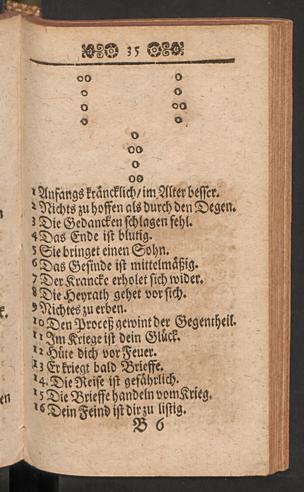 35
1 Anfangs kräncklich/ im Alter besser.
2 Nichts zu hoffen als durch den Degen.
3 Die Gedancken schlagen fehl.
4 Das Ende ist blutig.
5 Sie bringet einen Sohn.
6 Das Gesinde ist mittelmäßig.
7 Der Krancke erholet sich wider.
8 Die Heyrath gehet vor sich.
9 Nichtes zu erben.
10 Den Proceß gewint der Gegentheil.
11 Im Kriege ist dein Glück.
12 Hüte dich vor Feuer.
13 Er kriegt bald Brieffe.
14. Die Reise ist gefährlich.
15 Die Brieffe handeln vom Krieg.
16 Dein Feind ist dir zu listig.
B 6